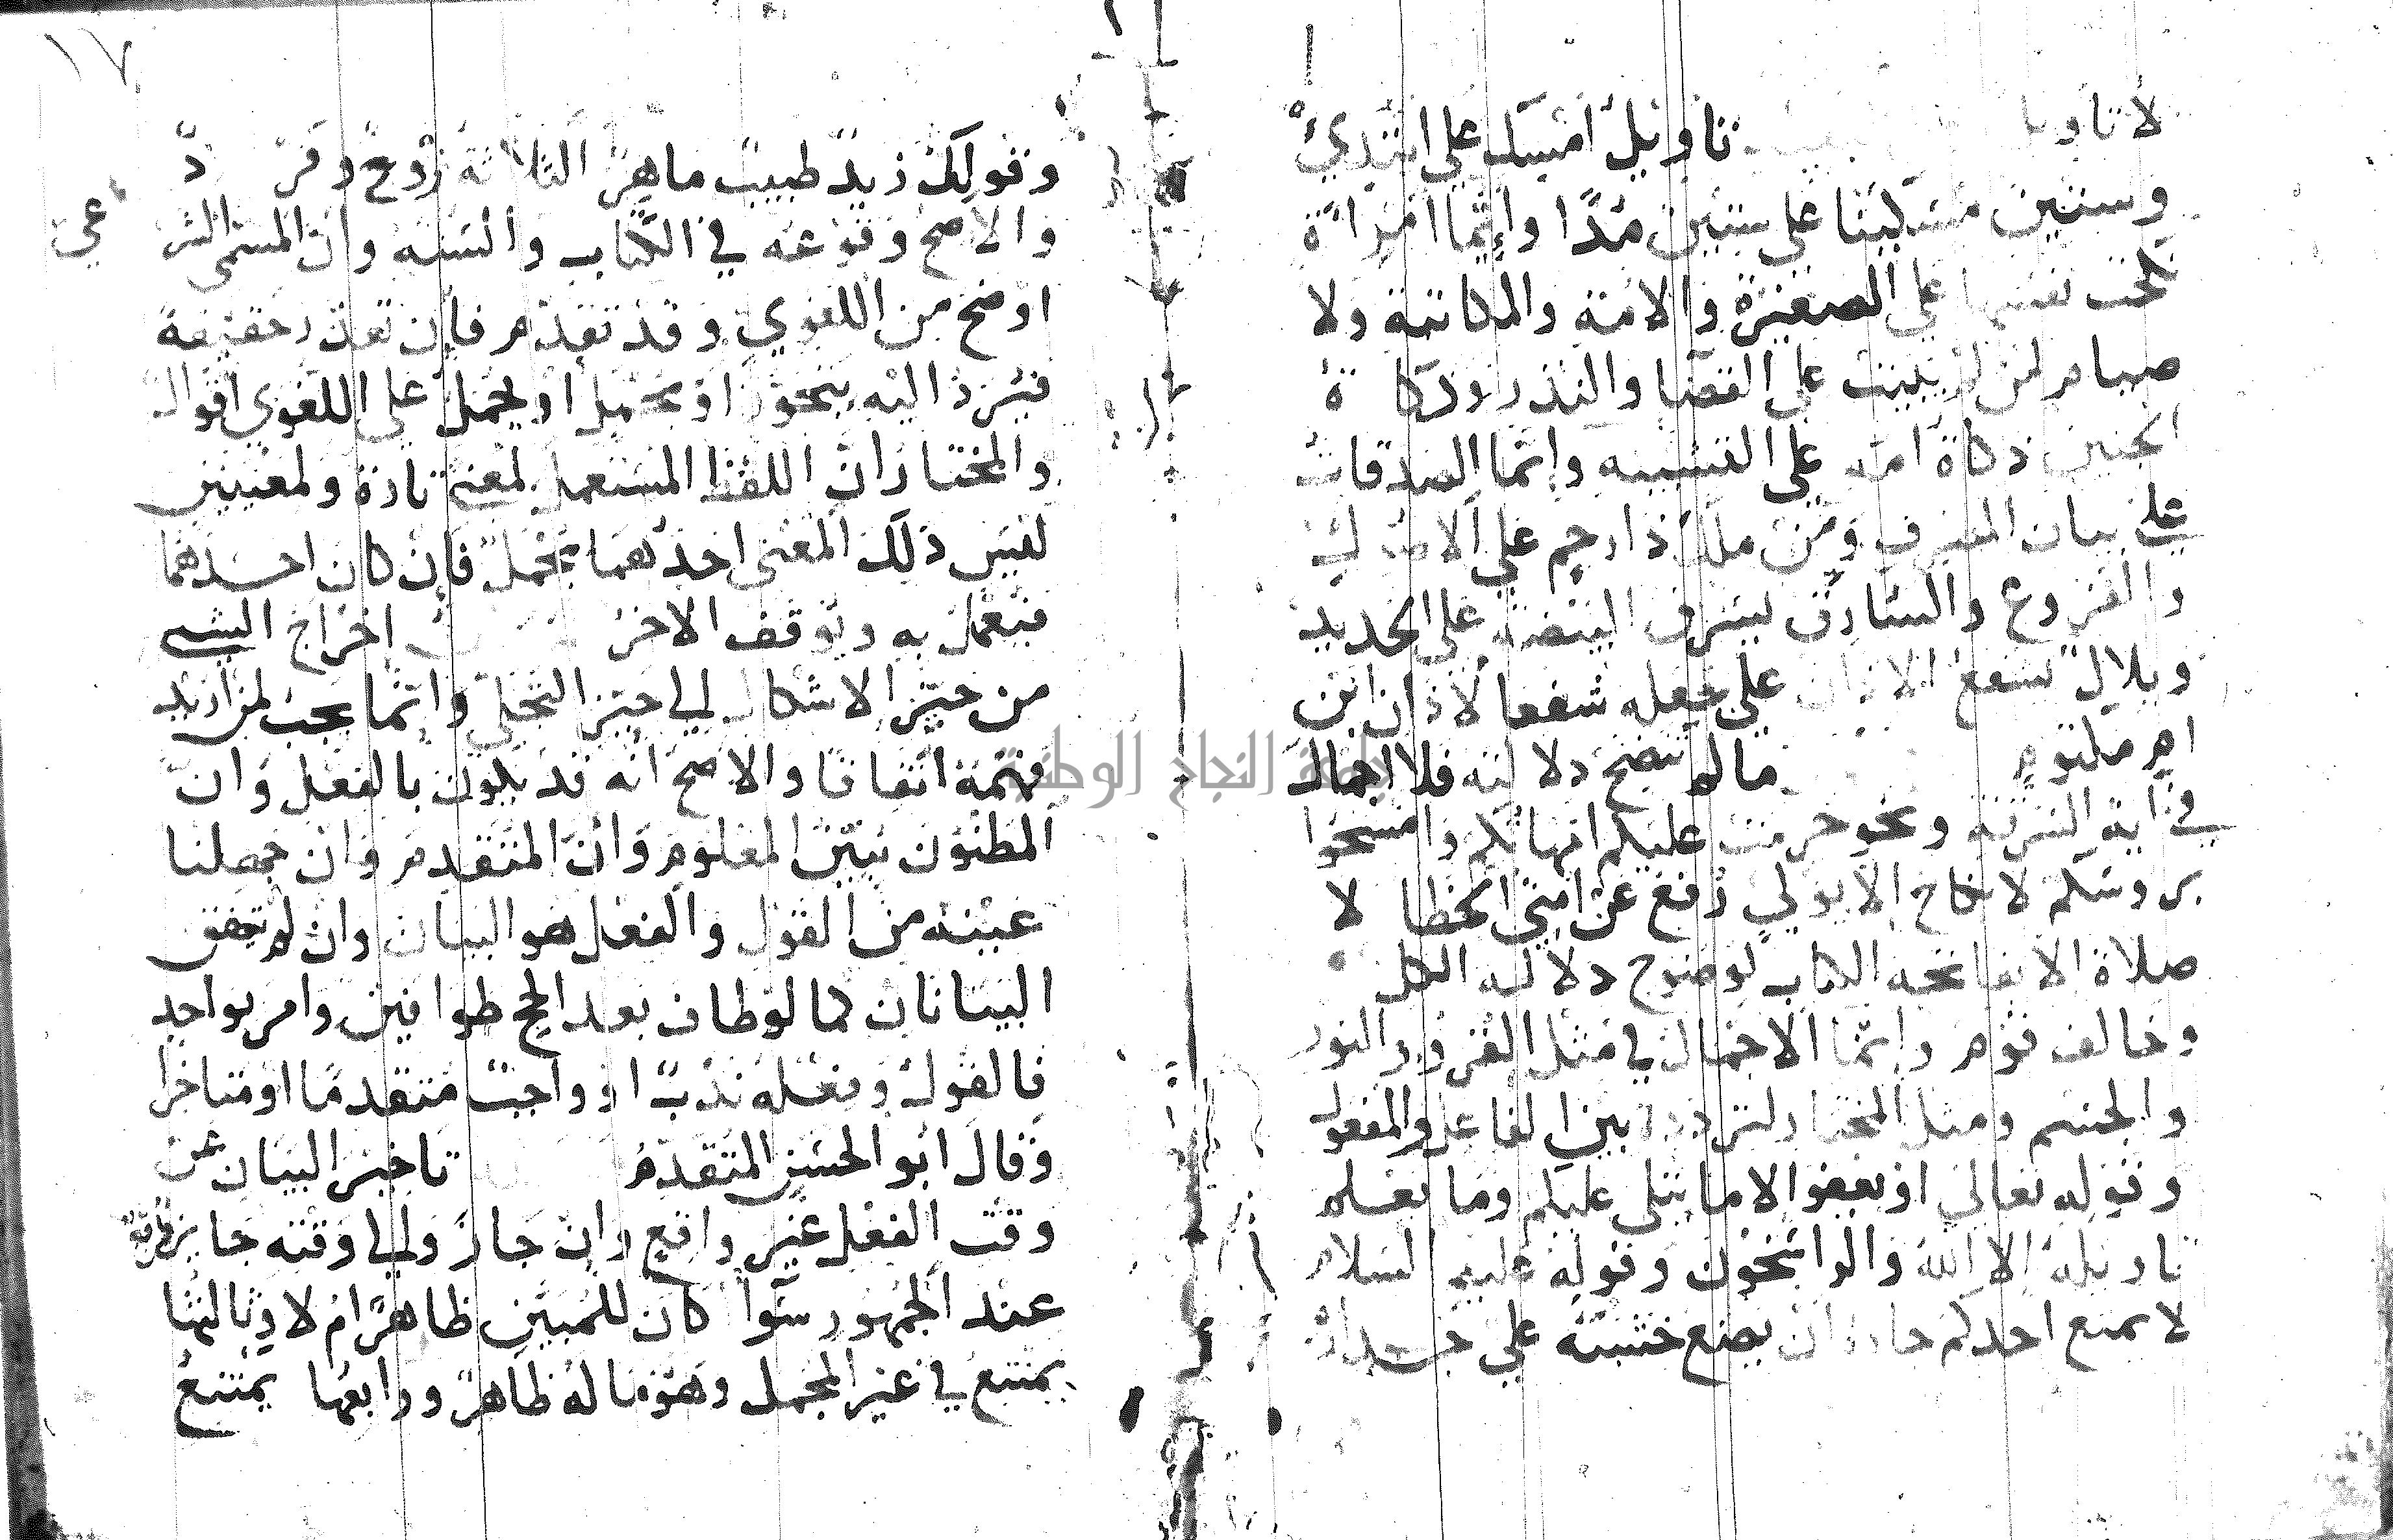 لا تاويل تاويل امسك على ابتدئ
وستين مسكينا على ستين مدا وايما امراة
نكحت نفسها على الصغيرة والامة والمكاتبة ولا
صيام لمن لم يبيت على القضا والنذر وذكاة
الجنين ذكاة امه على التشبيه وانما الصدقات
على بيان المصرف ومن ملك ذا رحم على الاصول
والفروع والسارق يسرق البيضة على الحديد
وبلال يشفع الاذان على جعله شفعا لاذان ابن
ام مكتوم ما لم تتضح دلالته فلا اجمال
في اية السرقة ونحو حرمت عليكم امهاتكم وامسحوا
بروسكم لا نكاح الا بولي رفع عن امتي الخطا لا
صلاة الا بفاتحة الكتاب لوضوح دلالة الكل
وخالف قوم وانما الاجمال في مثل القرو والنور
والجسم ومثل المختار لتردده بين الفاعل والمفعول
وقوله تعالى او يعفو الا ما يتلى عليكم وما يعلم
تاويله الا الله والراسخون وقوله عليه السلام
لا يمنع احدكم جاره ان يضع خشبته على جداره
١٧
وقولك زيد طبيب ماهر الثلاثة زوج وفرد
والاصح وقوعه في الكتاب والسنة وان المسمى الشرعي
اوضح من اللغوي وقد تقدم فان تعذر حقيقة
فيرد اليه بتجوز او مجمل او يحمل على اللغوي اقوال
والمختار ان اللفظ المستعمل لمعنى تارة ولمعنيين
ليس ذلك المعنى احدهما مجمل فان كان احدهما
فيعمل به ويوقف الاخر اخراج الشي
من حيز الاشكال الى حيز التجلي وانما يجب لمن اريد
فهمه اتفاقا والاصح انه قد يكون بالفعل وان
المظنون يبين المعلوم وان المتقدم وان جهلنا
عينه من القول والفعل هو البيان وان لم يتفق
البيانان كما لو طاف بعد الحج طوافين وامر بواحد
فالقول وفعله ندب او واجب متقدما او متاخرا
وقال ابو الحسين المتقدم تاخير البيان عن
وقت الفعل غير واقع وان جاز والى وقته جايز واقع
عند الجمهور سوا كان للمبين ظاهر ام لا وثالثها
يمتنع في غير المجمل وهو ما له ظاهر ورابعها يمتنع
جامعة النجاح الوطنية